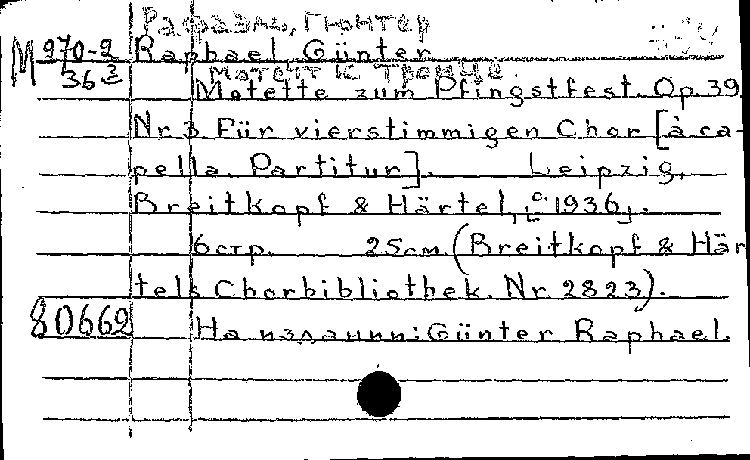 Рафаэль, Гюнтер
М 270-2
36 3
Raphael, Günter
Мотетт к Троице
Motette zum Pfingstfest. Op. 39
Nr 3. Für vierstimmigen Chor [à ca-
pella. Partitur]. Leipzig,
Breitkopf & Härtel, [c. 1936].
6 стр. 25 см. (Breitkopf & Här
tels Chorbibliothek. Nr. 2823).
80662
На издании: Günter Raphael.